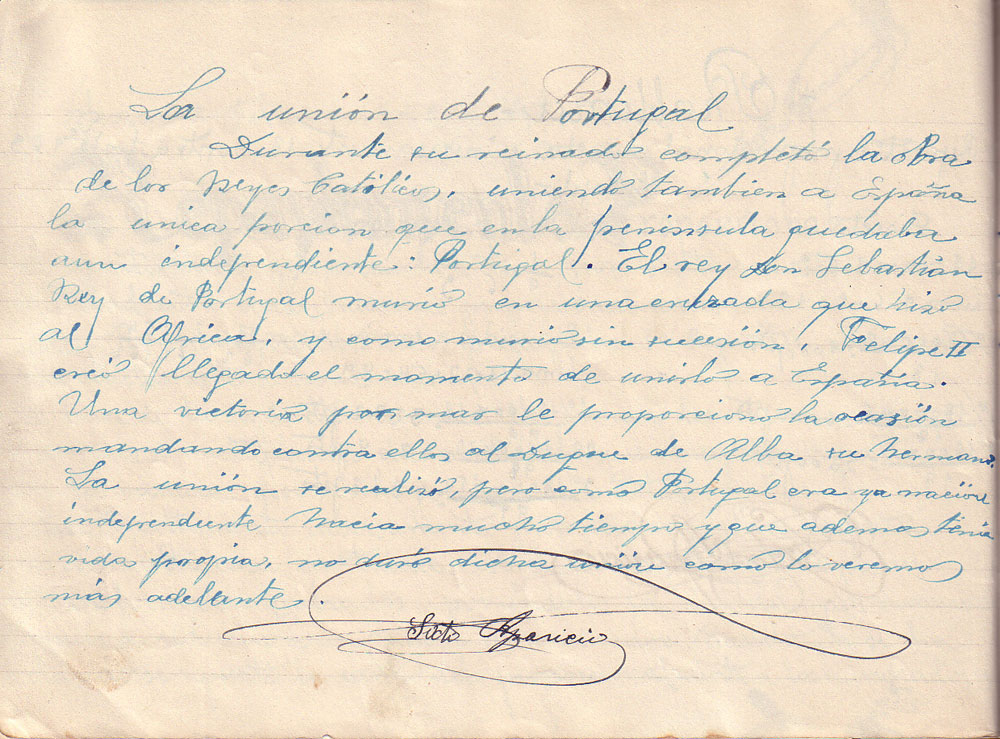 La unión de Portugal
Durante su reinado completó la obra
de los Reyes Católicos, uniendo tambien a España
la unica porcion que en la peninsula quedaba
aun independiente: Portugal. El rey Don Sebastián
Rey de Portugal murió en una cruzada que hizo
al Africa, y como murio sin sucesión, Felipe II
creió llegado el momento de unirlo a España.
Una victoria por mar le proporciono la ocasión
mandando contra ellos al Duque de Alba su hermano.
La unión se realizó, pero como Portugal era ya nación
independiente hacia mucho tiempo y que ademas tenia
vida propia, no duró dicha unión cómo lo veremos
más adelante.
Sixto Aparicio